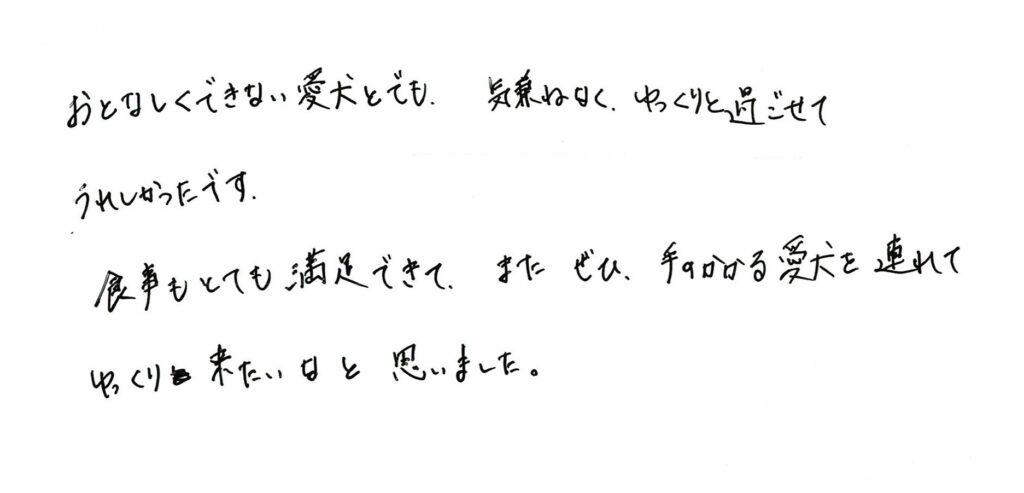 おとなしくできない愛犬とでも、気兼ねなく、ゆっくりと過ごせて
うれしかったです。
食事もとても満足できて、また ぜひ、手のかかる愛犬を連れて
ゆっくり来たいなと思いました。